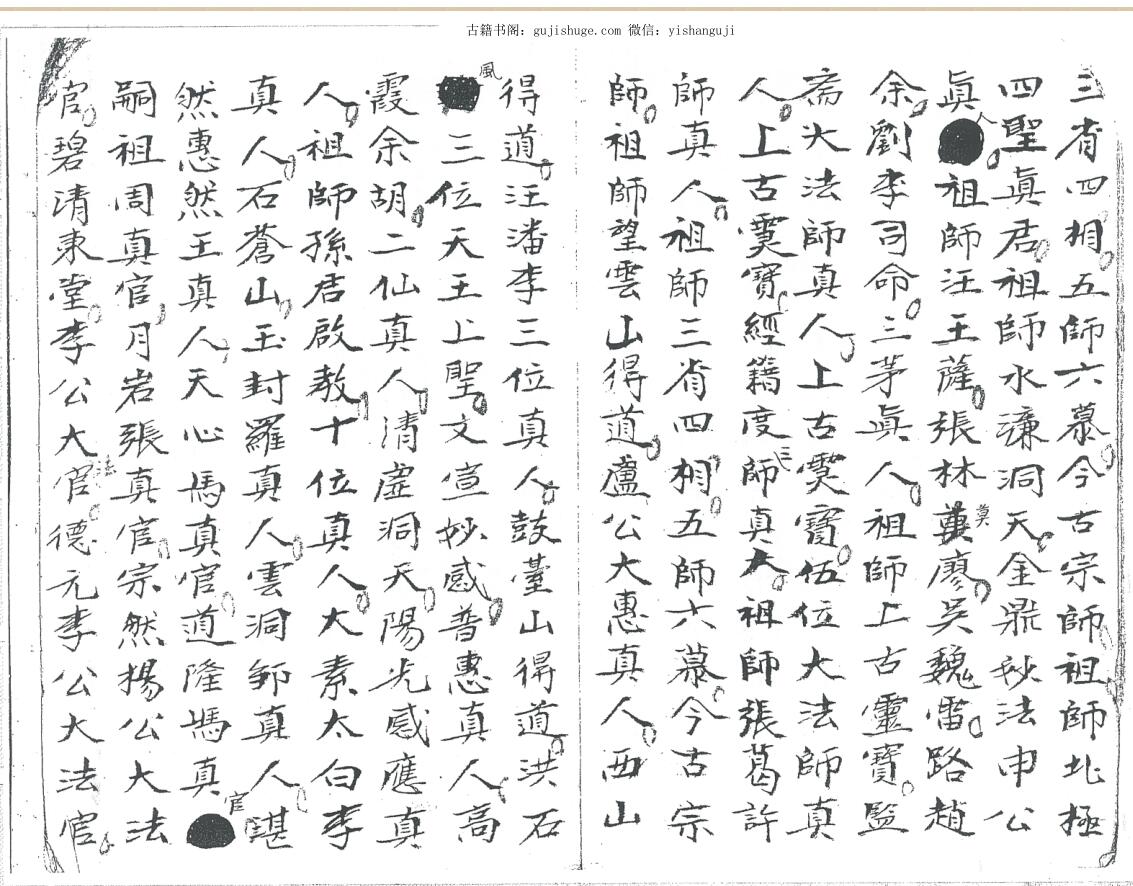 古籍书阁：gujishuge.com 微信：yishanguji
三省四相五師六慕今古宗師祖師北極
四聖眞君祖師水濂洞天金鼎妙法申公
眞人祖師汪王薩張林莫廖吴魏雷路趙
余劉李司命三茅眞人祖師上古靈寶監
斋大法師真人上古霛寳伍位大法師真
人上古霛寶經籍度師三真人祖師張葛許
師真人祖師三省四相五師六慕今古宗
師祖師望雲山得道盧公大惠真人西山
得道汪潘李三位真人鼓臺山得道洪石
風三位天王上聖文宣妙感普惠真人高
霞余胡二仙真人清虛洞天陽光感應真
人祖師孫君啟教十位真人大素太白李
真人石蒼山玉封羅真人雲洞邹真人諶
然惠然王真人天心馮真官道隆馮真官
嗣祖周真官月岩張真官宗然楊公大法
官碧清東堂李公大法官德元李公大法官